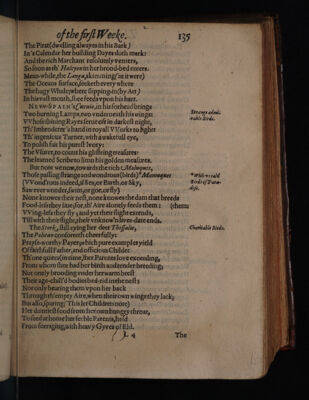 of the first Weeke. 135
The Pirat (dwelling alwayes in his Bark)
In's Calendar her building Dayes doth mark:
And the rich Marchant resolutely venters,
So soon as th' Halcyon in her brood-bed enters.
Mean-while, the Langa, skimming (as it were)
The Oceans surface, seeketh every where
The hugy Whale; where slipping-in (by Art)
In his vast mouth, shee feeds vpon his hart.
NEW-SPAIN's Cucuio, in his forhead brings
Strange admirable Birds.
Two burning Lamps, two vnderneath his wings:
VVhose shining Rayes serue oft in darkest night,
Th' Imbroderer's hand in royall VVorks to light:
Th' ingenious Turner, with a wakefull eye,
To polish fair his purest Ivory:
The Vsurer, to count his glistring treasures:
The learned Scribe to limn his golden measures.
But now we now, towards the rich Moluques,
Those passing strange and wondrous (birds) Mamuques
* With vs cald Birds of Paradise.
(VVond'rous indeed, if Sea, or Earth, or Sky,
Saw ever wonder, swim, or goe, or fly)
None knowes their nest, none knowes the dam that breeds
Food-lesse they liue; for, th' Aire alonely feeds them:
(them:
VVing-lesse they fly; and yet their flight extends,
Till with their flight, their vnknow'n-dates ends.
The Stork, still eying her deer Thessalie,
Charitable Birds.
The Pelican consorteth cheerfully:
Prayse-worthy Payer; which pure examples yield
Of faithfull Father, and officious Childe:
Th' one quites (in time) her Parents love exceeding,
From whom shee had her birth and tender breeding;
Not onely brooding vnder her warm brest
Their age-chill'd bodies bed-rid in the nest;
Nor only bearing them vpon her back
Through th' empty Aire, when their own wings they lack;
But also, sparing (This let Children note)
Her daintiest food from her own hungry throat,
To feed at home her feeble Parents, held
From forreging, with heavy Gyves of Eld.
The